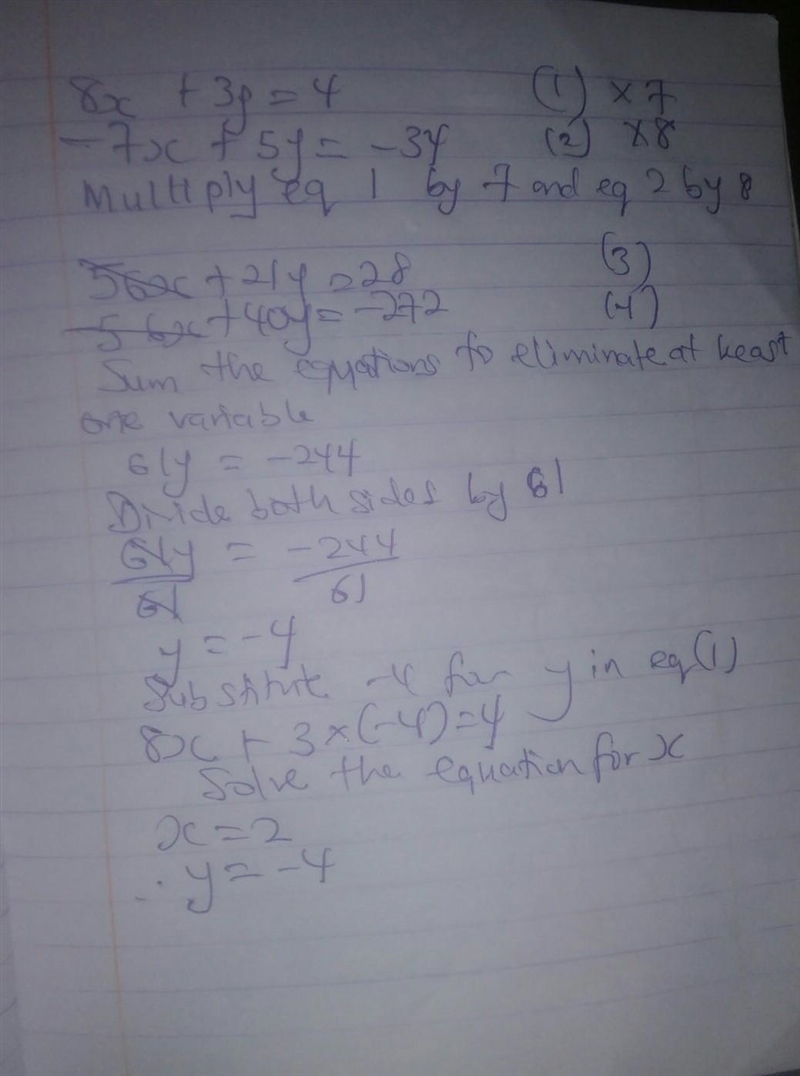 8x + 3y = 4 (1) ×7
-7x + 5y = -34 (2) ×8
Multiply eq 1 by 7 and eq 2 by 8
56x + 21y = 28 (3)
-56x + 40y = -272 (4)
Sum the equations to eliminate at least
one variable
61y = -244
Divide both sides by 61
61y/61 = -244/61
y = -4
Substitute -4 for y in eq (1)
8x + 3×(-4) = 4
Solve the equation for x
x = 2
∴ y = -4